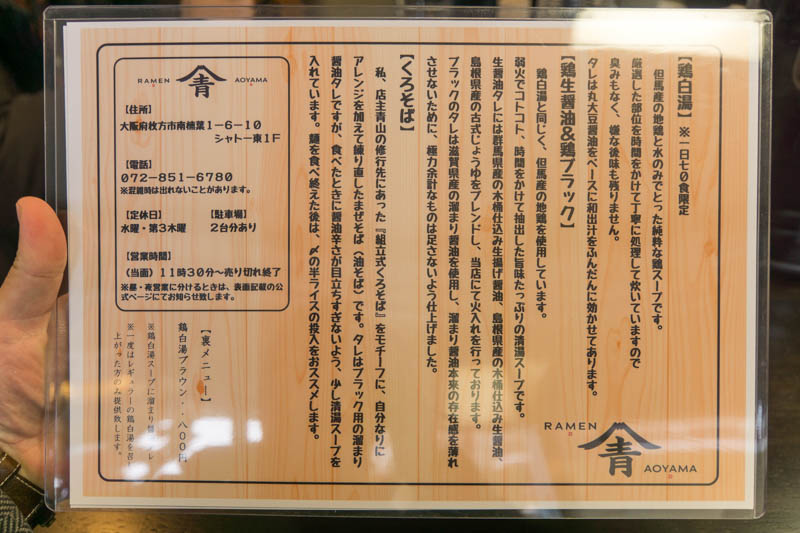 【鶏白湯】 ※一日七〇食限定
但馬産の地鶏と水のみでとった純粋な鶏スープです。
厳選した部位を時間をかけて丁寧に処理して炊いていますので
臭みもなく、嫌な後味も残りません。
タレは丸大豆醤油をベースに和出汁をふんだんに効かせてあります。
【鶏生醤油&鶏ブラック】
鶏白湯と同じく、但馬産の地鶏を使用しています。
弱火でコトコト、時間をかけて抽出した旨味たっぷりの清湯スープです。
生醤油タレには群馬県産の木桶仕込み生揚げ醤油、島根県産の木桶仕込み生醤油、
島根県産の古式じょうゆをブレンドし、当店にて火入れを行っております。
ブラックのタレは滋賀県産の溜まり醤油を使用し、溜まり醤油本来の存在感を薄れ
させないために、極力余計なものは足さないよう仕上げました。
【くろそば】
私、店主青山の修行先にあった『組立式くろそば』をモチーフに、自分なりに
アレンジを加えて練り直したまぜそば(油そば)です。タレはブラック用の溜まり
醤油タレですが、食べたときに醤油辛さが目立ちすぎないよう、少し清湯スープを
入れています。麺を食べ終えた後は、〆の半ライスの投入をおススメします。
RAMEN 青 AOYAMA
【住所】
大阪府枚方市南楠葉1-6-10
シャトー東1F
【電話】
072-851-6780
※混雑時は出れないことがあります。
【定休日】 【駐車場】
水曜・第3木曜 2台分あり
【営業時間】
(当面)11時30分～売り切れ終了
※昼・夜営業に分けるときは、表面記載の公
式ページにてお知らせ致します。
【裏メニュー】
鶏白湯ブラウン・・八〇〇円
※鶏白湯スープに溜まり醤
※一度はレギュラーの鶏白湯を召し
上がった方のみ提供致します。
RAMEN 青 AOYAMA